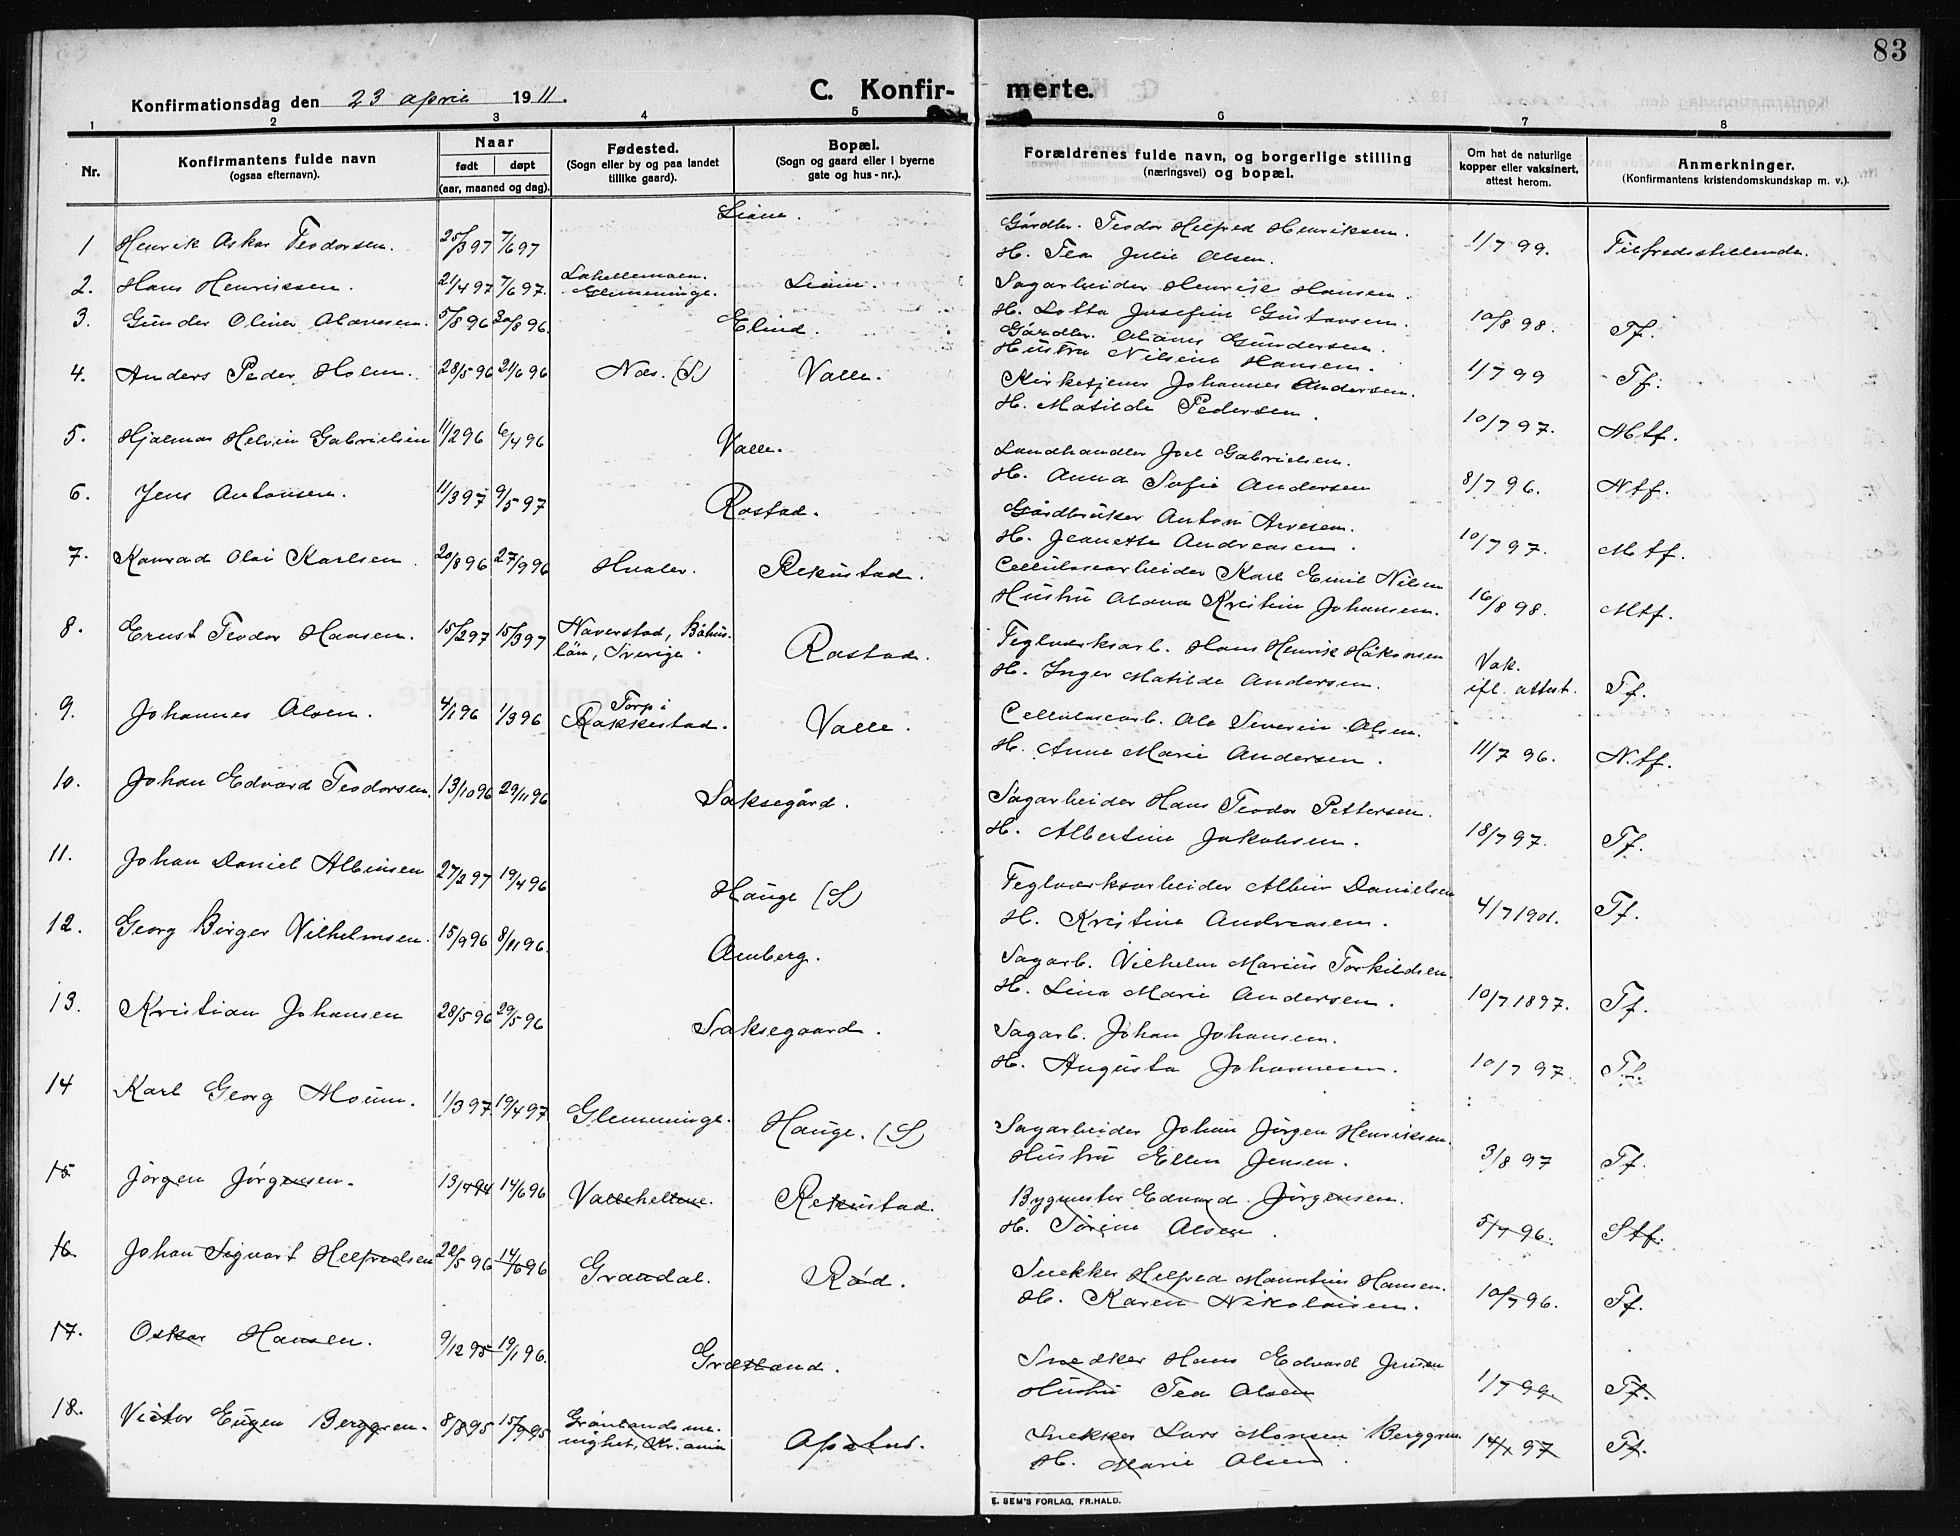 83
Konfirmationsdag den 23 april 1911.
C. Konfirmerte.
1 2 3 4 5 6 7 8
Nr. Konfirmantens fulde navn (ogsaa efternavn). Naar født døpt (aar, maaned og dag). Fødested. (Sogn eller by og paa landet tillike gaard). Bopæl. (Sogn og gaard eller i byerne gate og hus-nr.). Forældrenes fulde navn, og borgerlige stilling (næringsvei) og bopæl. Om hat de naturlige kopper eller vaksinert, attest herom. Anmerkninger. (Konfirmantens kristendomskundskap m. v.).
1 Henrik Oskar Teodorsen. 25/3 97 7/6 97 Liane. Gårdbr. Teodor Helfred Henriksen. 1/7 99. Tilfredsstillende.
H. Tea Julie Olsen.
2. Hans Henriksen. 21/4 97 7/6 97. Glemminge. Liane. Sagarbeider Henrik Hansen.
H. Lotta Josefine Gustavsen. 10/8 98. Tf.
3. Gunder Oliver Olavesen. 5/8 96 30/8 96. Elind. Gårdbr. Olaves Gundersen.
Hustru Nilsine Hansen. 1/7 99 Tf.
4. Anders Peder Holm. 28/5 96 21/6 96 Næs. (S) Valle. Kirketjener Johannes Andersen.
H. Matilde Pedersen. 10/7 97. Mtf.
5. Hjalmar Helvin Gabrielsen 11/2 96 6/4 96 Valle. Landhandler Joel Gabrielsen.
H. Anna Sofie Andersen 8/7 96. Ntf.
6. Jens Antonsen. 11/3 97 9/5 97 Rostad. Gårdbruker Anton Arvesen.
H. Jeanette Andreasen. 10/7 97. Mtf.
7. Konrad Olai Karlsen. 20/8 96 27/9 96 Hvaler. Rekustad. Cellulosearbeider Karl Emil Nilsen
Hustru Olava Kristine Johansen. 16/8 98. Mtf.
8. Ernst Teodor Hansen. 15/2 97 15/3 97 Naverstad, Båhus-
län, Sverige. Rostad. Teglverksarb. Hans Henrik Håkonsen
H. Inger Matilde Andersen. Vak. ifl. attest. Tf.
9. Johannes Olsen. 4/1 96 1/3 96 Torp i
Rakkestad. Valle. Cellulosearb. Ole Severin Olsen.
H. Anne Marie Andersen. 11/7 96. N.tf.
10. Johan Edvard Teodorsen. 13/10 96 29/11 96 Saksegård. Sagarbeider Hans Teodor Pettersen.
H. Albertine Jakobsen. 18/7 97. Tf.
11. Johan Daniel Albinsen 27/2 97 19/4 96 Hauge (S) Teglverksarbeider Albin Danielsen
H. Kristine Andreasen. 4/7 1901. Tf.
12. Georg Birger Vilhelmsen. 15/9 96 8/11 96. Amberg. Sagarb. Vilhelm Marius Torkildsen
H. Lina Marie Andersen. 10/7 1897. Tf.
13. Kristian Johansen 28/5 96 29/5 96 Saksegaard. Sagarb. Johan Johansen.
H. Augusta Johannesen. 10/7 97. Tf.
14 Karl Georg Moum. 1/3 97. 19/4 97 Glemminge. Hauge. (S) Sagarbeider Johan Jørgen Henriksen.
Hustru Ellen Jensen. 3/8 97 Tf.
15 Jörgen Jörgensen. 14/6 96 Vallehellene. Rekustad. Bygmester Edvard Jörgensen.
H. Sørine Olsen. 5/7 96. Stf.
16. Johan Sigvart Helfredsen 22/5 96 14/6 96 Grandal. Rød. Snekker Helfred Mauritius Hansen.
H. Karen Nikolaisen. 10/7 96. Tf.
17. Oskar Hansen. 9/12 95 19/1 96. Græsland. Snedker Hans Edvard Jensen
Hustru Tea Olsen 1/7 99. Tf.
18. Victor Eugen Berggren. 8/8 95 15/9 95 Grønlands me-
nighet, Kr.ania Snekker Lars Monsen Berggren
H. Marie Olsen. 14/1 97 Tf.
E. SEM'S FORLAG, FR.HALD.